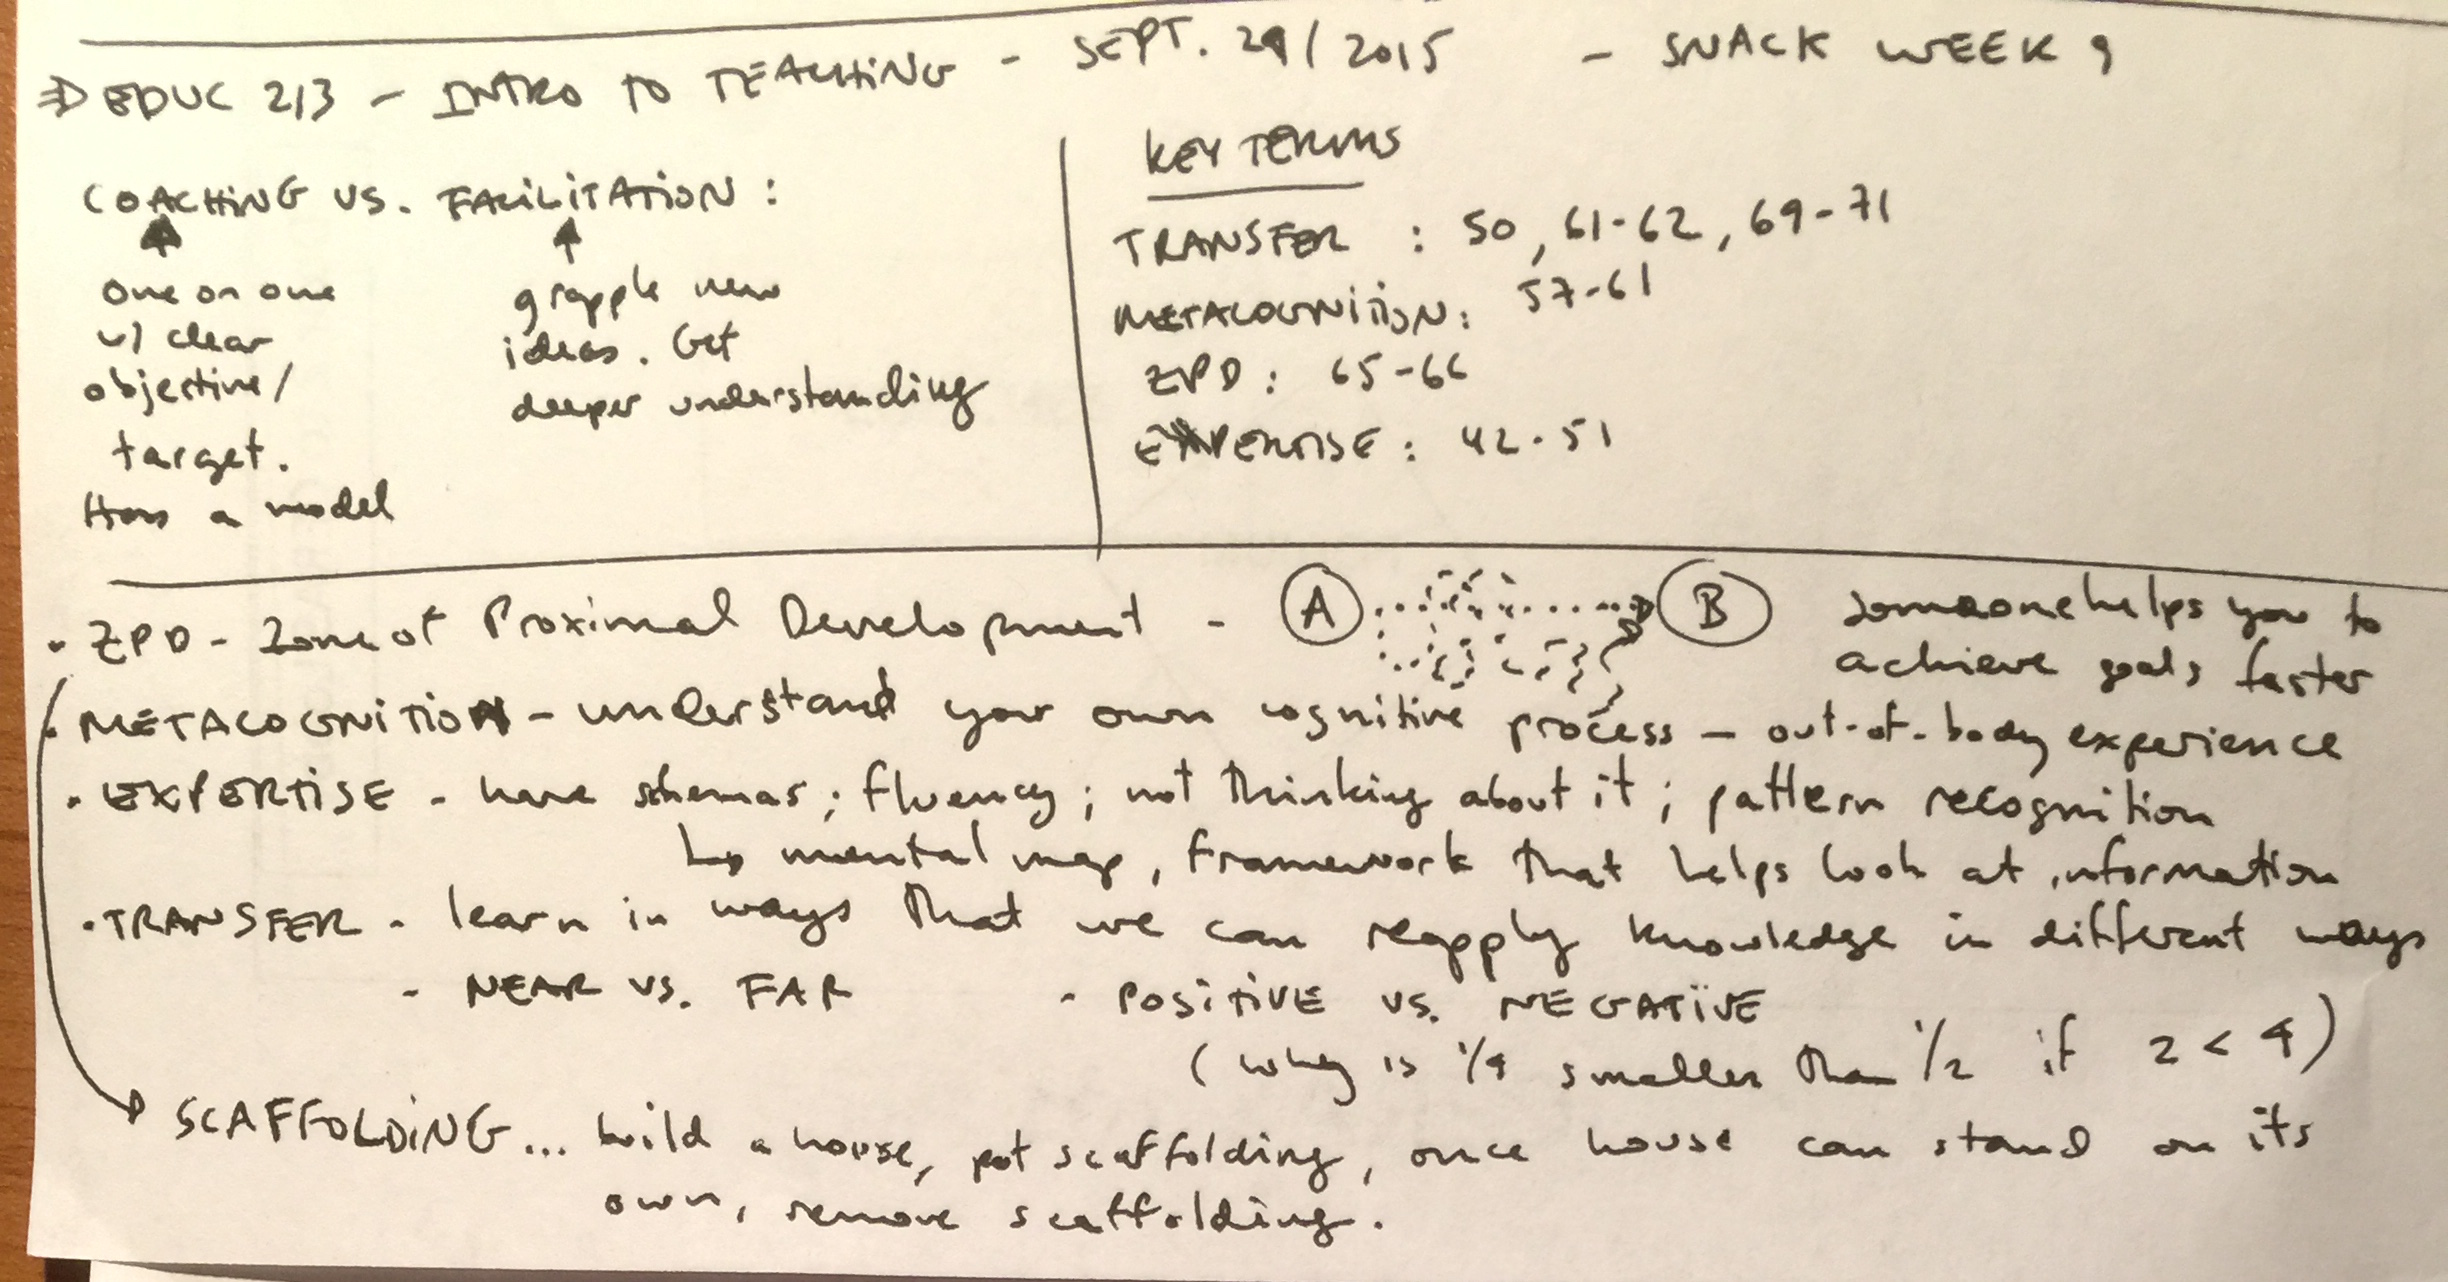 ⇒ EDUC 213 - INTRO TO TEACHING - SEPT. 29/2015 - SNACK WEEK 9
COACHING VS. FACILITATION :
one on one
w/ clear
objective/
target.
Has a model
grapple new
ideas. Get
deeper understanding
KEY TERMS
TRANSFER : 50, 61-62, 69-71
METACOGNITION: 57-61
ZPD : 65-66
EXPERTISE : 42-51
• ZPD - Zone of Proximal Development - A B someone helps you to
achieve goals faster
• METACOGNITION - understand your own cognitive process - out-of-body experience
• EXPERTISE - have schemas; fluency; not thinking about it; pattern recognition
↳ mental map, framework that helps look at information
• TRANSFER - learn in ways that we can reapply knowledge in different ways
- NEAR VS. FAR - POSITIVE VS. NEGATIVE
(why is 1/4 smaller than 1/2 if 2 < 4)
SCAFFOLDING... build a house, put scaffolding, once house can stand on its
own, remove scaffolding.